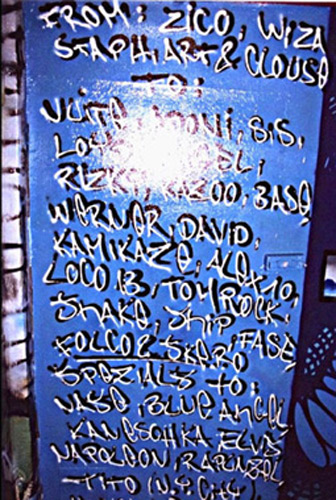 FROM: ZICO, WIZA
STAPH, ART & CLOUSE
TO:
S.I.S.
RIZKY, KAZOO, BASE
WERNER, DAVID,
KAMIKAZE, ALEX 10,
LOCO 13, TOM ROCK,
SHAKE, SHIP
FOLCO 2 SKERO, FASE,
SPEZIALS TO:
VASE, BLUE ANGEL
KANESCHKA, ELVIS
NAPOLEON, RAPUNZEL
TITO (N.Y. CITY)